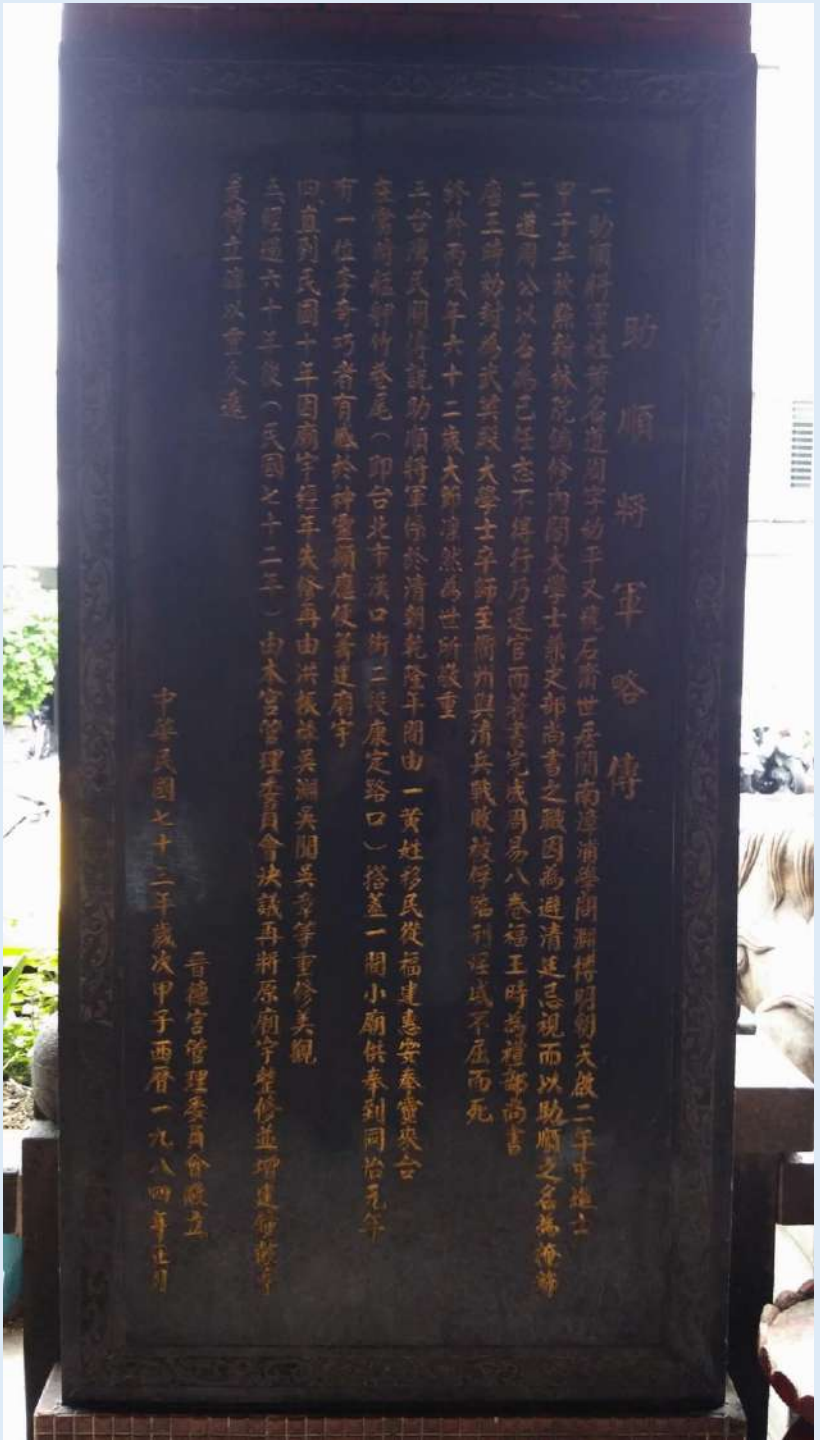 助順將軍略傳
一、助順將軍姓黃名道周字幼平又號石齋世居閩南漳浦學問淵博明朝天啟二年中進士
甲子年散熊翰林院編修內閣大學士兼吏部尚書之職因為避清廷忌視而以助順之名為掩飾
二、道周公以容為己任志不得行乃退官而著書完成周易八卷福王時為禮部尚書
唐王時勅封為武英殿大學士卒師至衢州與清兵戰敗被俘臨刑逞威不屈而死
終於丙戌年六十二歲大節凜然為世所敬重
三、台灣民間傳說助順將軍係於清朝乾隆年間由一黃姓移民從福建惠安奉靈來台
在當時艋舺竹巷尾（即台北市漢口街二段康定路口）搭蓋一間小廟供奉到同治元年
有一位李奇巧者有感於神靈顯應便籌建廟宇
四、直到民國十年因廟宇經年失修再由洪振 吳湖吳閣吳 等重修美觀
五、經過六十年後（民國七十二年）由本宮管理委員會決議再將原廟宇整修並增建
爰特立碑以重久遠
晉德宮管理委員會 立
中華民國七十三年歲次甲子西曆一九八四年正月